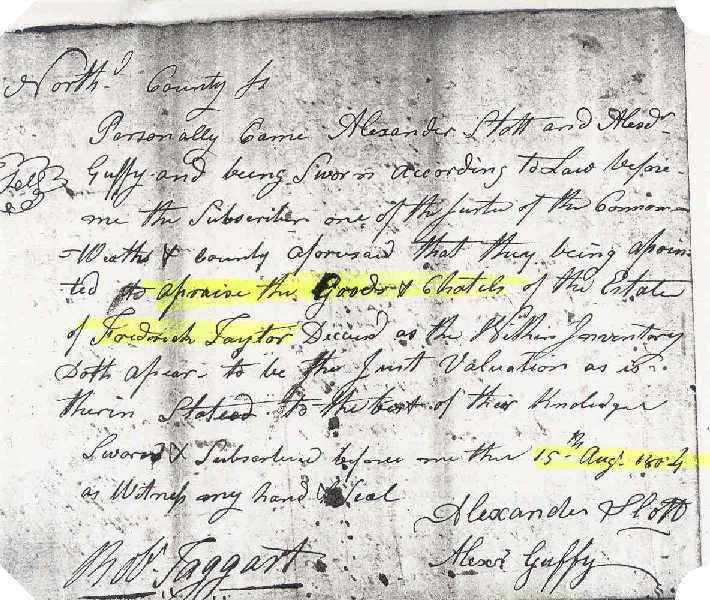 North.d County ss
Personally Came Alexander Stott and Alexdr
Guffy and being Sworn according to Law before
me the Subscriber one of the Justice of the Common
=Wealth & County aforesaid that they being apoin
ted to apraise the Goods & Chatels of the Estate
of Frederick Taylor Decesd as the Within Inventory
Doth apear to be the Just Valuation as is
therin Stated to the best of their Knoledge
Sworn & Subscribed before me this 15th Augt 1804
as Witness my hand & Seal
Alexander Stott
Robt Taggart
Alexr Guffy